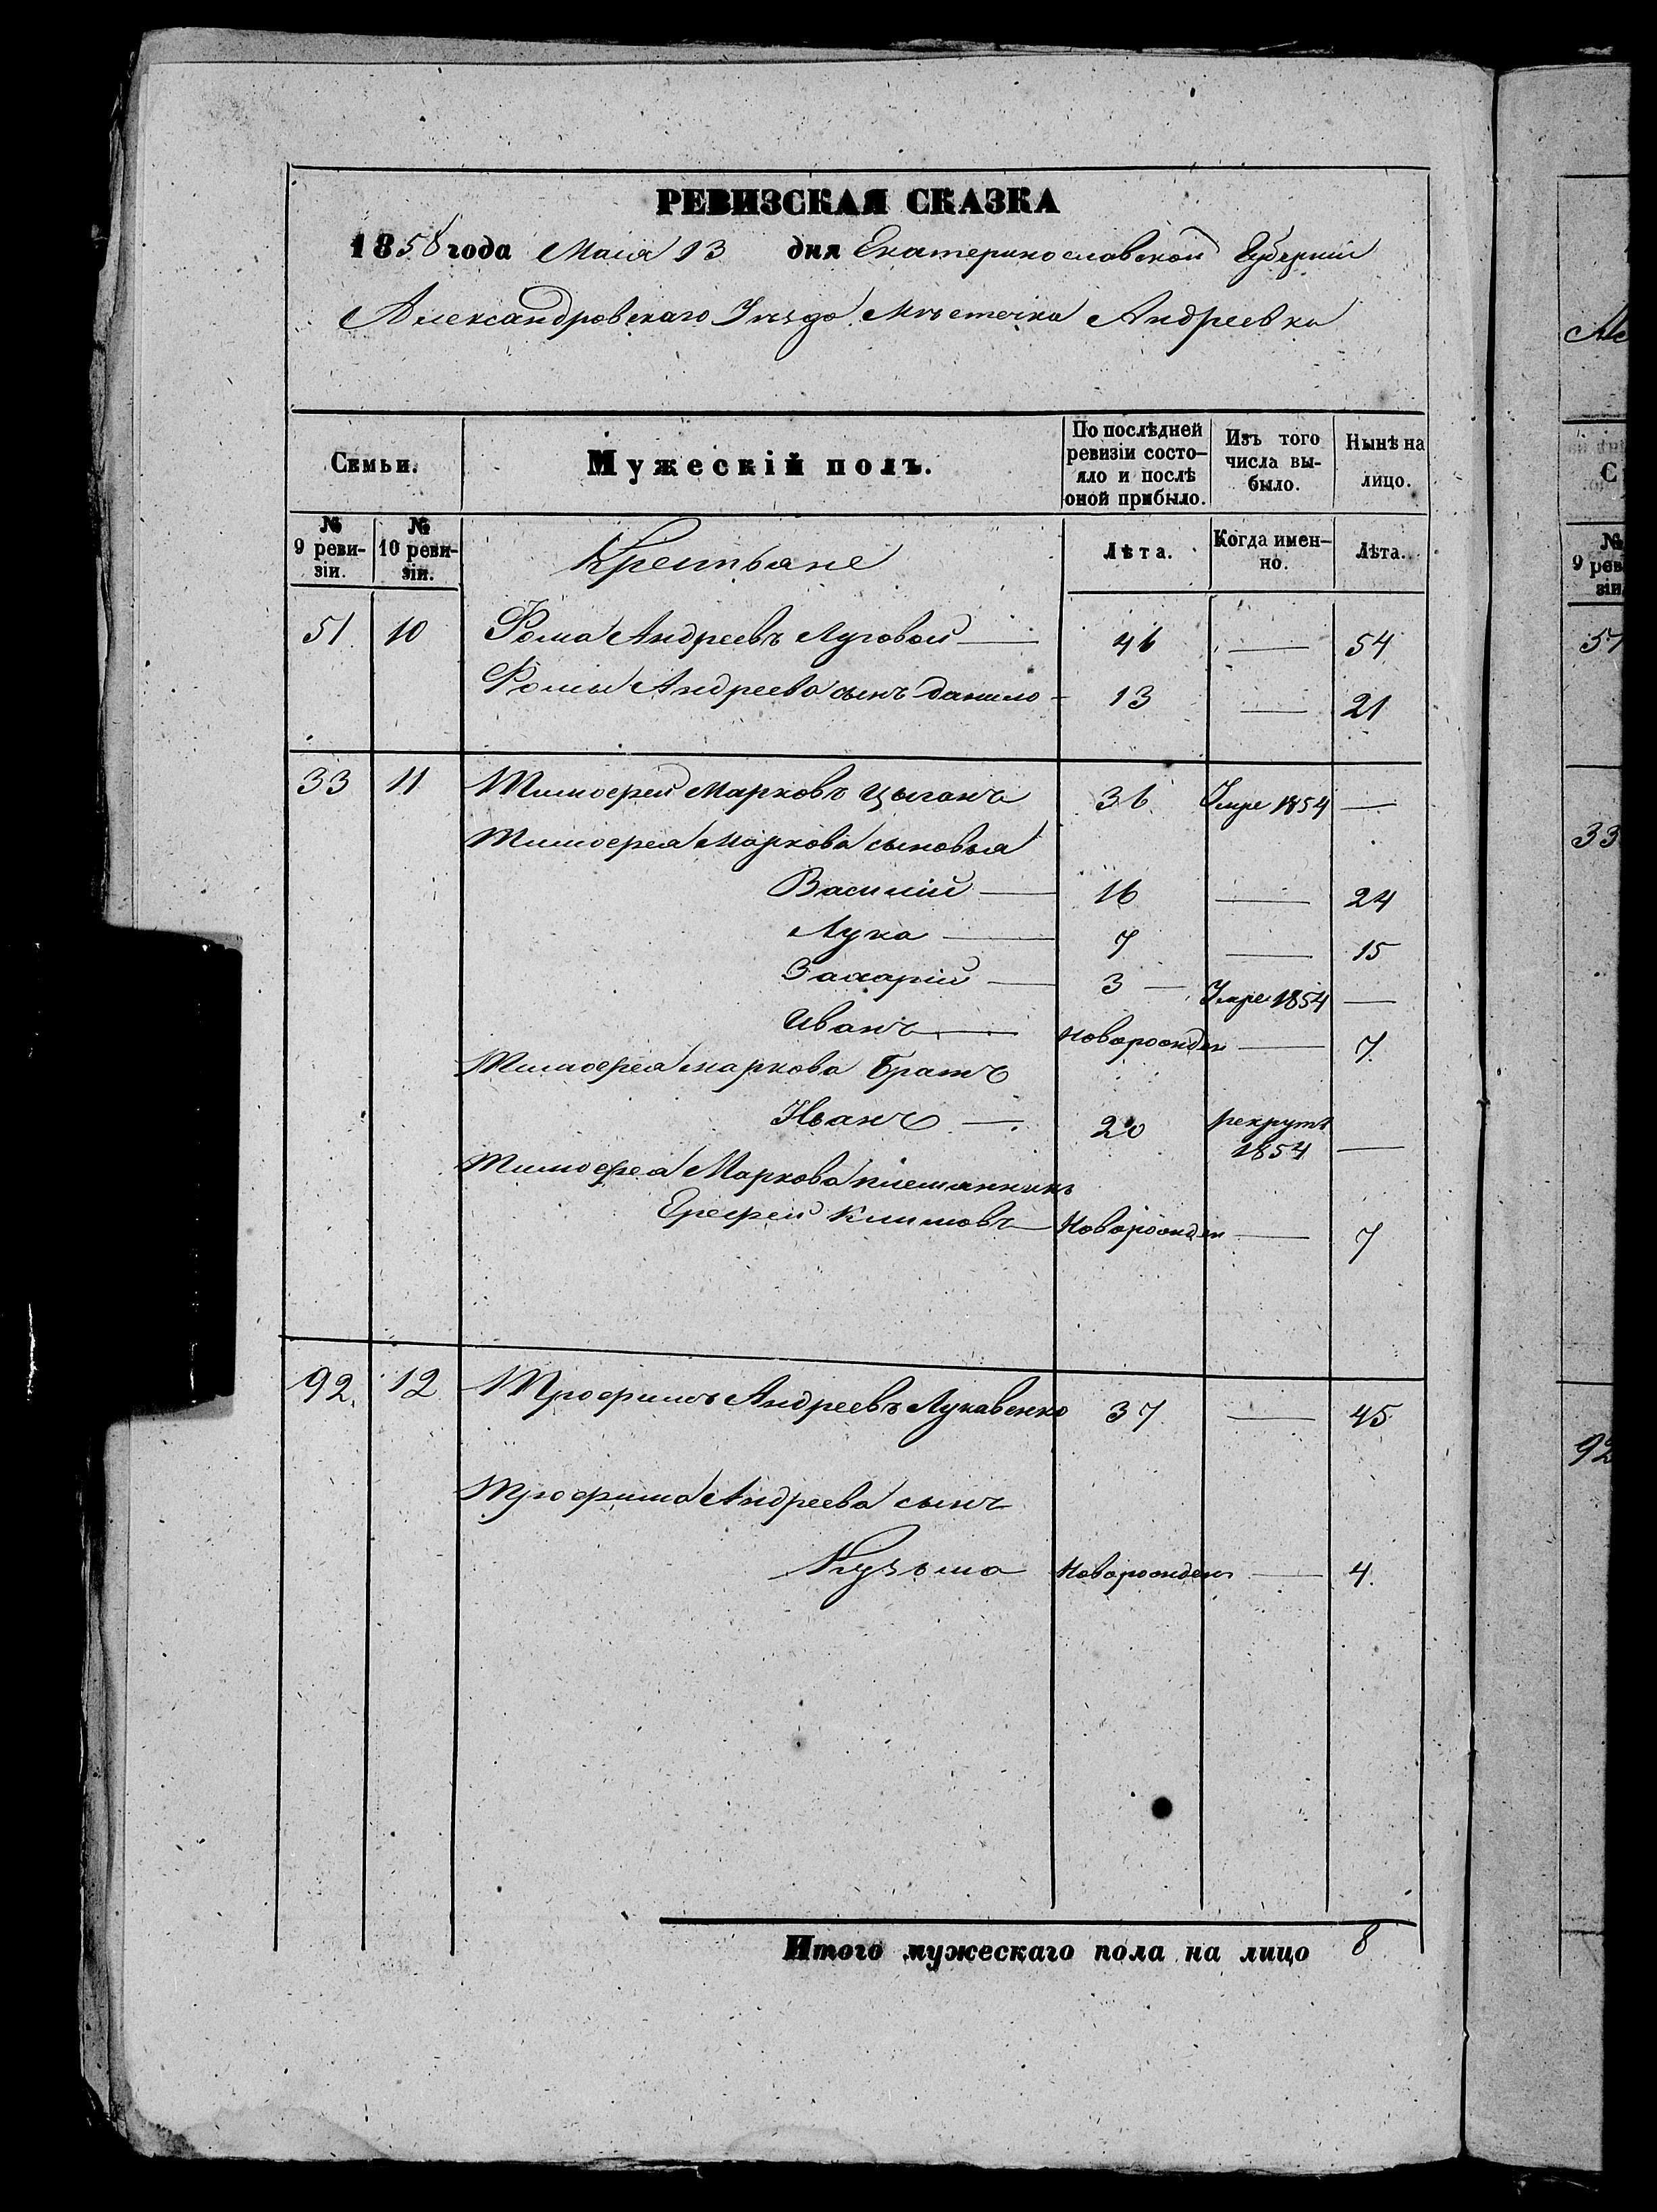 РЕВИЗСКАЯ СКАЗКА
1858 года Маія 13 дня Екатеринославской Губерніи
Александровскаго Уѣзда Мѣстечка Андреевка
Семьи. Мужескій полъ. По послѣдней ревизіи состо- яло и послѣ оной прибыло. Изъ того числа вы- было. Нынѣ на лицо.
№ 9 реви- зіи. № 10 реви- зіи. Крестьяне Лѣта. Когда имен- но. Лѣта.
51. 10 Фома Андреевъ Луговой — 46 — 54
Фомы Андреева сынъ данило — 13 — 21
33 11 Тимофей Марковъ Цыганъ 36 Умре 1854 —
Тимофея Маркова сыновья
Василій — 16 — 24
Лука — 7 — 15
Захарій — 3 — Умре 1854 —
Иванъ — Новорожден — 7
Тимофея маркова Братъ
Иванъ — 20 рекрутъ 1854 —
Тимофея Маркова племянникъ
Ерефей Климовъ — Новорожден — 7
92. 12 Трофимъ Андреевъ Лукавенко 37 — 45
Трофима Андреева сынъ
Кузьма Новорожденъ — 4.
Итого мужескаго пола на лицо 8
С
№ 9 рев зіи
57
33
92